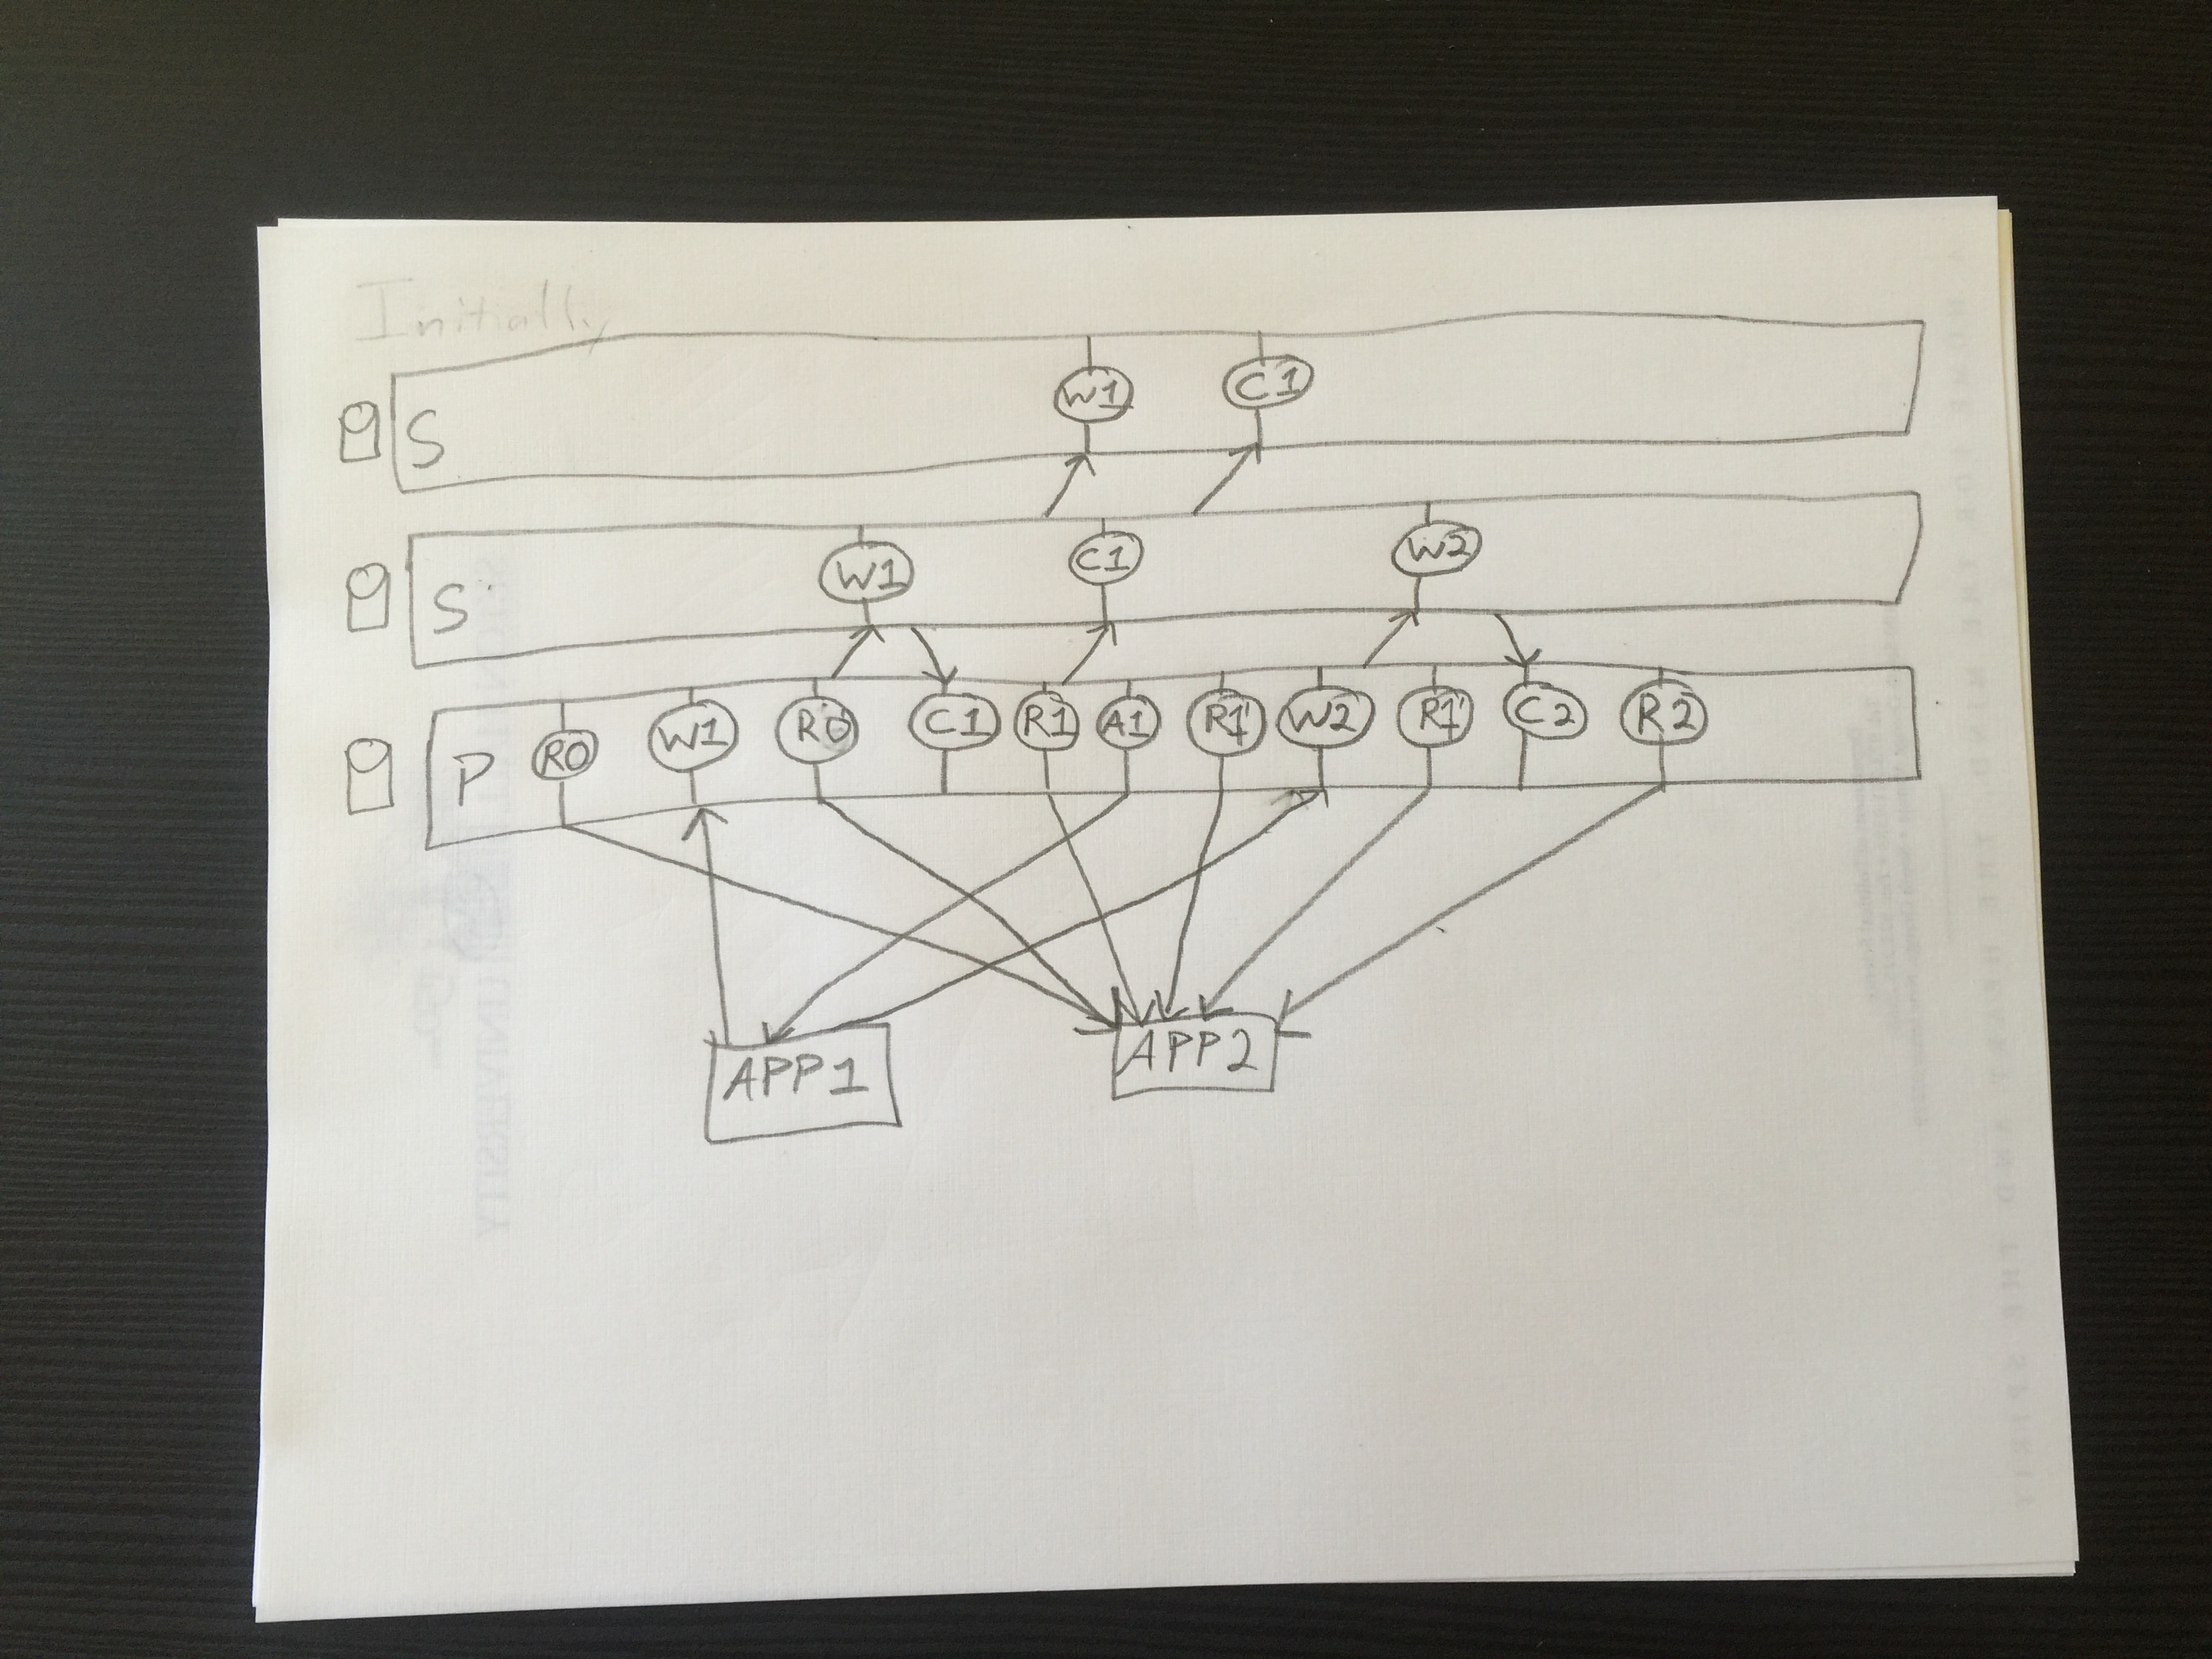 Initially
S W1 C1
S W1 C1 W2
P R0 W1 R0 C1 R1 A1 R1 W2 R1 C2 R2
APP1 APP2
UNIVERSITY